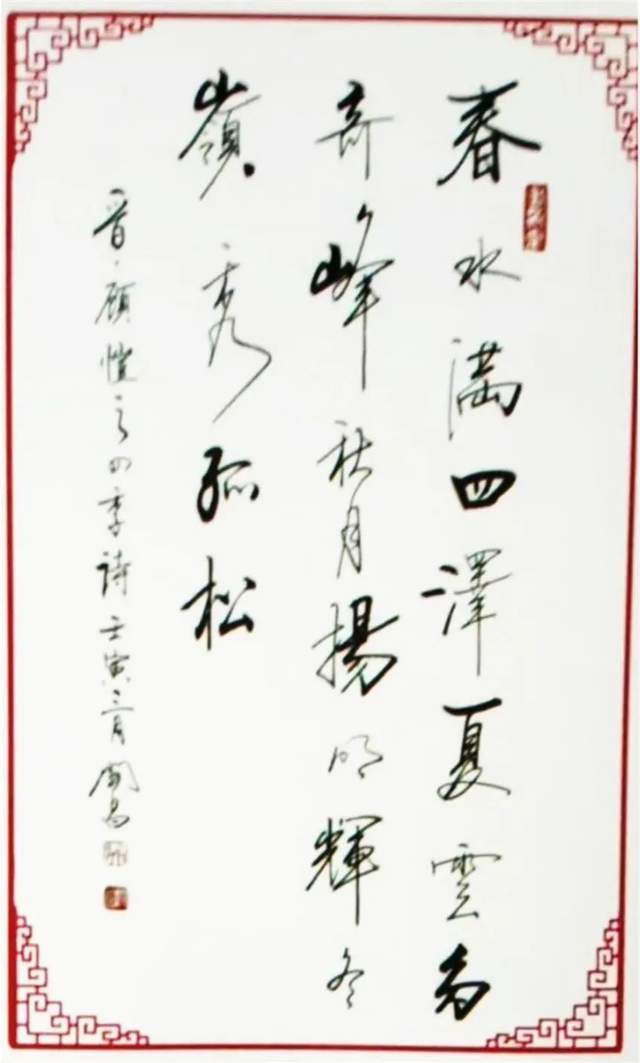 春水满四澤夏雲多
奇峰秋月揚明輝冬
嶺秀孤松
晋顾恺之四季诗壬寅三月